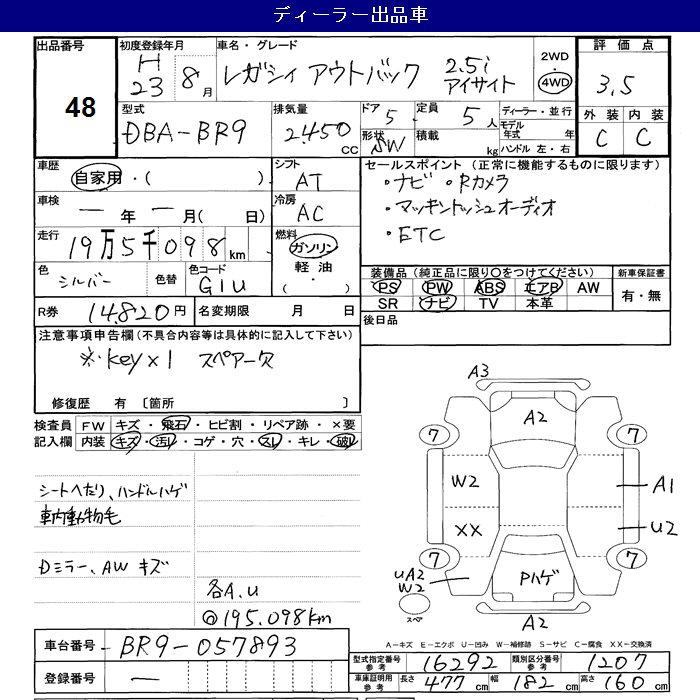 ディーラー出品車
出品番号 48
初度登録年月 H 23 8 月
車名・グレード レガシィ アウトバック 2.5i アイサイト
2WD ・ 4WD
評価点 3.5
外装 内装
C C
型式 DBA-BR9
排気量 2450 CC
ドア 5
形状 SW
定員 5 人
積載 kg
ディーラー・並行
モデル年式 年
ハンドル 左・右
車歴 自家用・( )
シフト AT
車検 ー 年 ー 月( 日)
冷房 AC
走行 19万5千098 km
燃料 ガソリン ・ 軽油 ・
色 シルバー
色替
色コード G1U
R券 14,820円
名変期限 月 日
セールスポイント(正常に機能するものに限ります)
・ナビ ・Rカメラ
・マッキントッシュオーディオ
・ETC
装備品(純正品に限り〇をつけてください)
PS PW ABS エアB AW
SR ナビ TV 本革
新車保証書
有・無
後日品
注意事項申告欄(不具合内容等は具体的に記入して下さい)
※・Key×1 スペアー欠
修復歴 有〔箇所 〕
検査員記入欄
FW キズ・飛石・ヒビ割・リペア跡・×要
内装 キズ・汚レ・コゲ・穴・スレ・キレ・破レ
シートへたり、ハンドルハゲ
車内動物毛
Dミラー、AW キズ
各A.U
@195.098km
A3
A2
7 7
W2 A1
XX U2
7 7
UA2
W2
Pハゲ
スペア
A2
A-キズ E-エクボ U-凹み W-補修跡 S-サビ C-腐食 XX-交換済
車台番号 BR9-057893
登録番号 ー
型式指定番号 参考 16292
類別区分番号 参考 1207
車庫証明用 参考 長さ 477 cm 幅 182 cm 高さ 160 cm